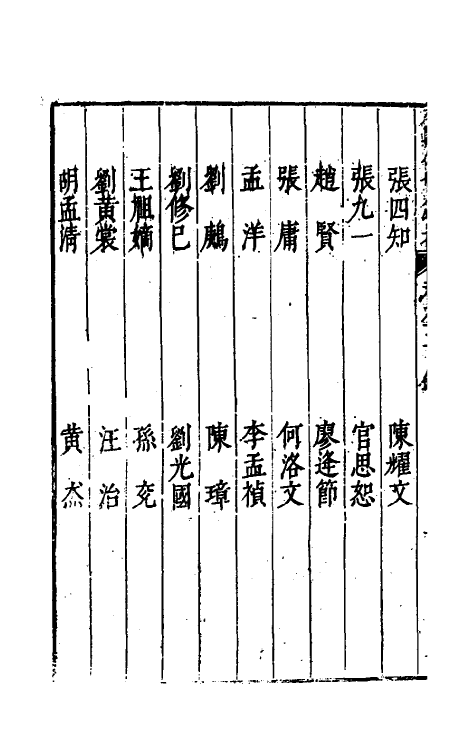 張四知　陳耀文
張九一　官思恕
趙賢　廖逢節
張庸　何洛文
孟洋　李孟禎
劉鷛　陳璋
劉修己　劉光國
王祖嫡　孫兖
劉黃裳　汪治
胡孟清　黃杰